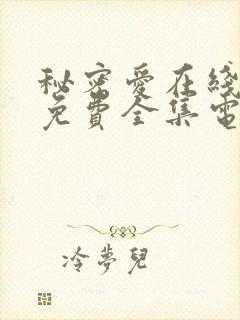 秘密愛在綫
免費全集電
冷夢兒